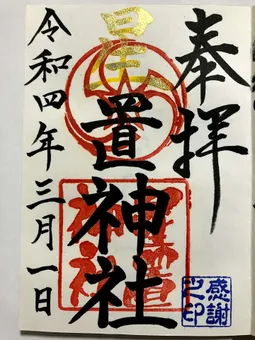 奉拝
星置神社
令和四年三月一日
感謝
之印